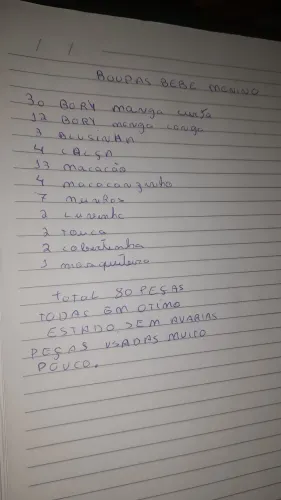 / /
BOUPAS BEBE MANINO
30 BORY manga curta
12 BORY manga longa
3 BLUSINHA
4 CALÇA
13 macacão
4 macacanzinho
7
2
2 TOUCA
2 cobertinha
1 mosquiteiro
TOTAL 80 PEÇAS
TODAS EM OTIMO
ESTADO SEM AVARIAS
PEÇAS USADAS MUITO
POUCO.